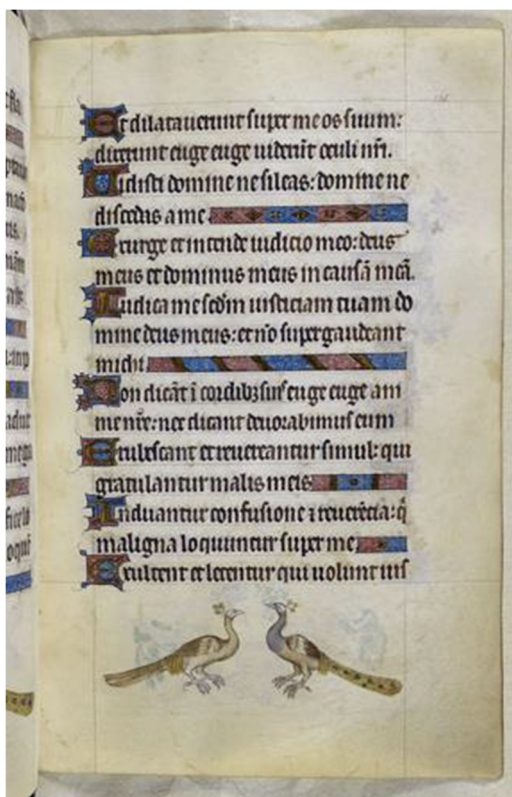 Et dilatauerunt super me os suum:
dixerunt euge euge uiderūt oculi nr̄i.
Uidisti domine ne sileas: domine ne
discedas a me
Exurge et intende iudicio meo: deus
meus et dominus meus in causā meā.
Iudica me scdm̄ iusticiam tuam do
mine deus meus: et nō supergaudeant
michi
Non dicāt ī cordibȝ suis euge euge ani
me nr̄e: nec dicant deuorabimus eum
Erubescant et reuereantur simul: qui
gratulantur malis meis
Induantur confusione ⁊ reuerēcia: q̄
maligna loquuntur super me
Exultent et letentur qui uolunt ius